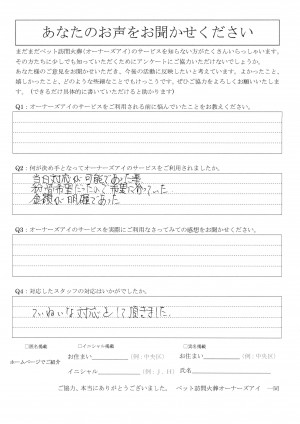 あなたのお声をお聞かせください
まだまだペット訪問火葬(オーナーズアイ)のサービスを知らない方がたくさんいらっしゃいます。
その方たちに少しでも知っていただくためにアンケートにご協力いただけないでしょうか。
あなた様のご意見をお聞かせいただき、今後の活動に反映したいと考えています。よかったこと、
嬉しかったこと、どのような些細なことでもけっこうです。ぜひご協力をよろしくお願いいたします。(できるだけ具体的に書いていただけると助かります)
Q1:オーナーズアイのサービスをご利用される前に悩んでいたことをお教えください。
Q2:何が決め手となってオーナーズアイのサービスをご利用されましたか。
当日対応が可能であった事
希望に合っていた。
金額が明確であった
Q3:オーナーズアイのサービスを実際にご利用なさってみての感想をお聞かせください。
Q4:対応したスタッフの対応はいかがでしたか。
ていねいな対応をして頂きました。
□イニシャル掲載
ホームページでご紹介
お住まい (例:中央区) お住まい (例:中央区)
イニシャル (例:J.H) 氏名
ご協力、本当にありがとうございました。 ペット訪問火葬オーナーズアイ